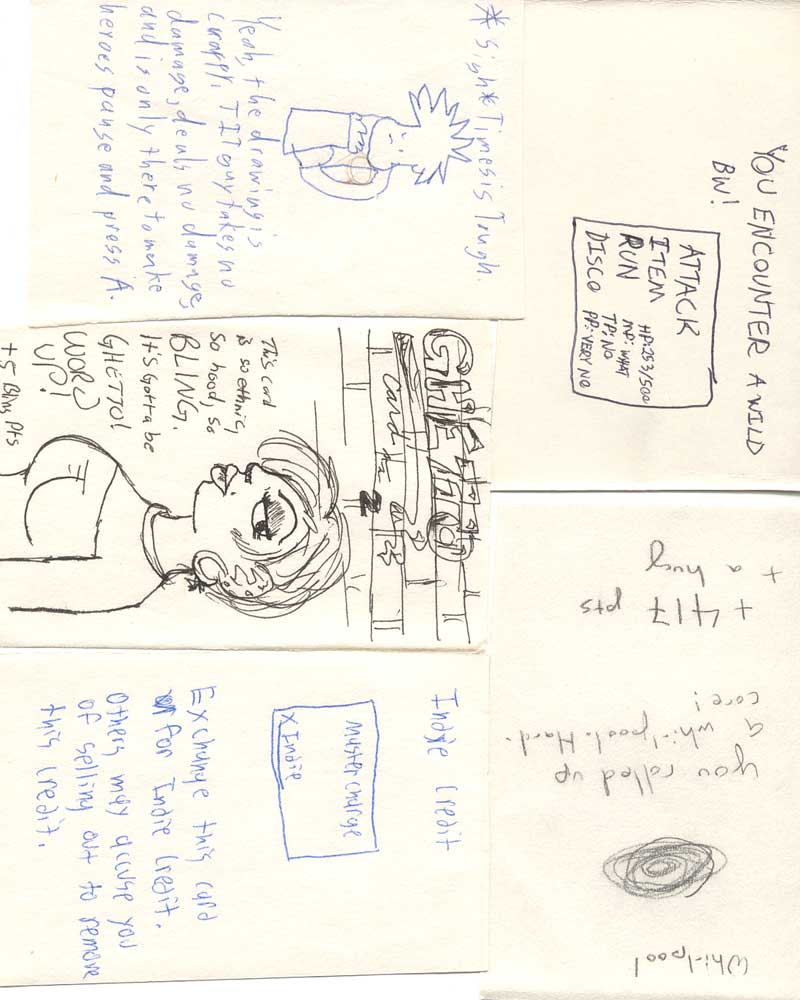 *Sigh* Times is Tough.
Yeah, the drawing is
crappy. TIT guy takes no
damage, deals no damage,
and is only there to make
heroes pause and press A.
YOU ENCOUNTER A WILD
BW!
ATTACK
ITEM HP:253/500
RUN MP: WHAT
TP: NO
DISCO PP: VERY NO
GHETTO
card
This card
is so ethnic,
so hood, so
BLING.
It's Gotta be
GHETTO!
WORD
UP!
+5 Bling Pts
Indie Credit
Mastercharge
X Indie
Exchange this card
for Indie Credit.
Others may accuse you
of selling out to remove
this credit.
Whirlpool
you rolled up
a whirlpool. Hard-
core!
+ 417 pts
+ a hug